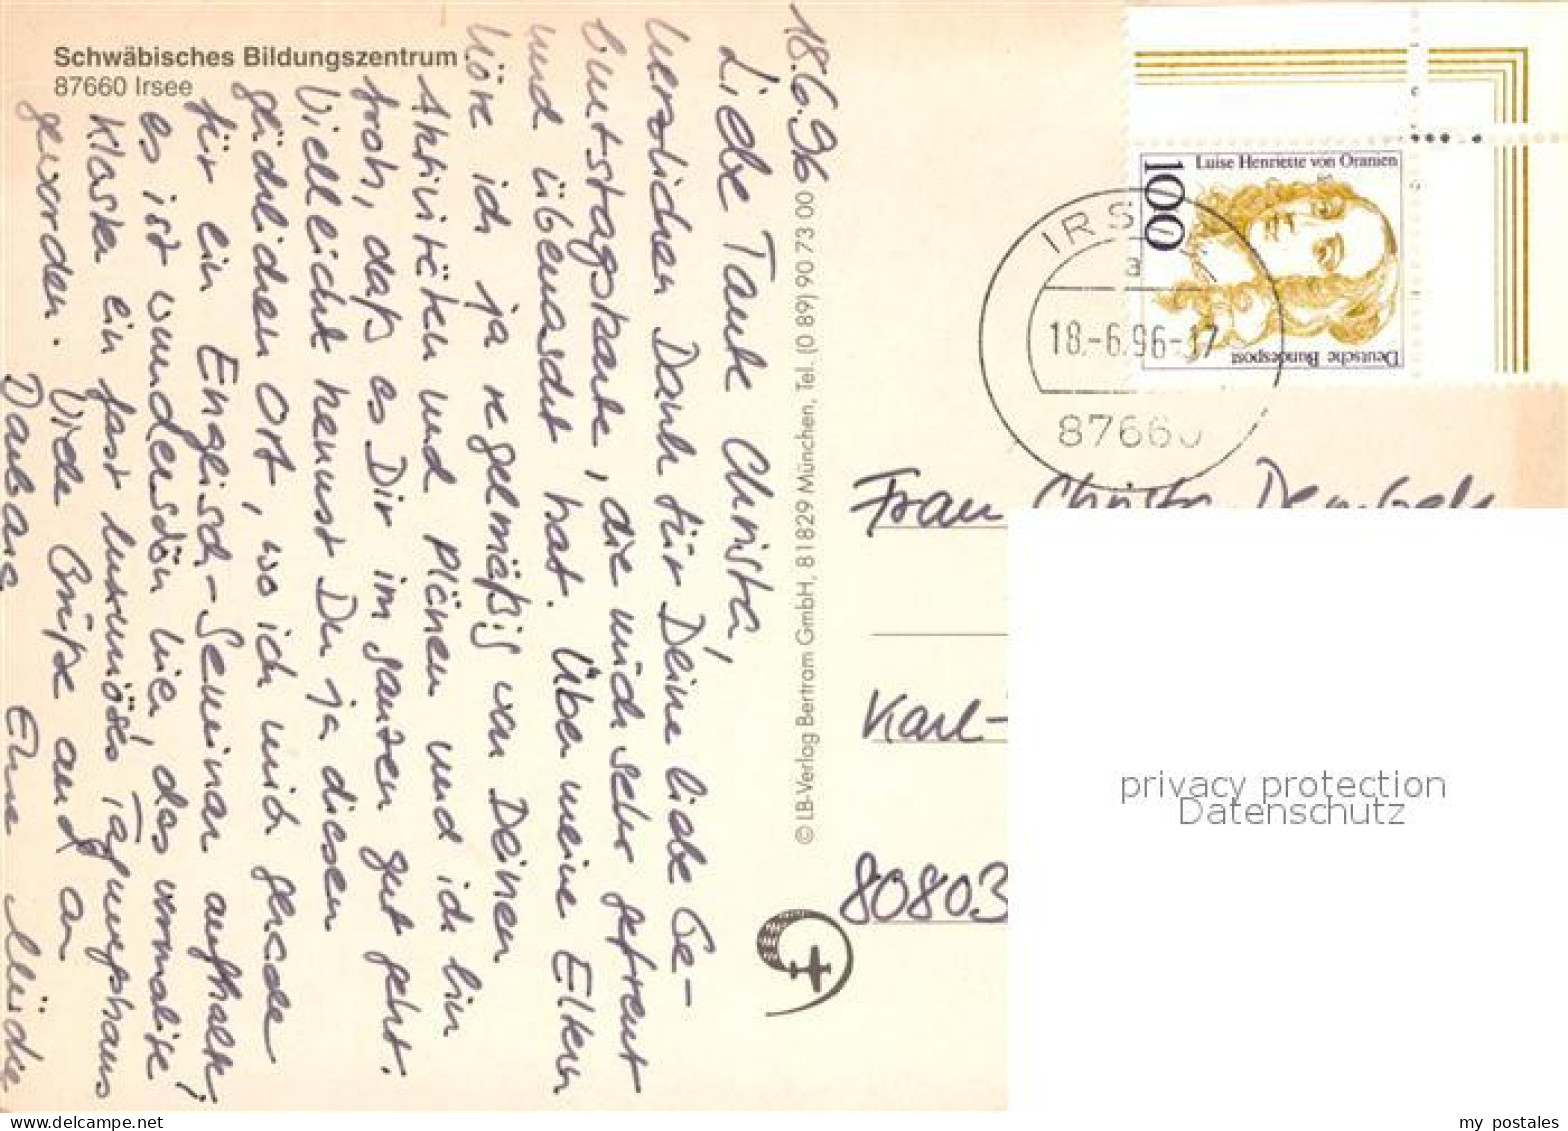 Schwäbisches Bildungszentrum
87660 Irsee
18.6.96
Liebe Tante Christa,
herzlichen Dank für Deine liebe Ge-
burtstagskarte, die mich sehr gefreut
und überrascht hat. Über meine Eltern
höre ich ja regelmäßig von Deinen
Aktivitäten und Plänen und ich bin
froh, daß es Dir im ganzen gut geht.
Vielleicht kennst Du ja diesen
glücklichen Ort, wo ich mich gerade
für ein Englisch-Seminar aufhalte,
es ist wunderschön hier, das vormalige
Kloster ein fast luxuriöses Tagungshaus
geworden. Viele Grüße auch an
Deine
© LB-Verlag Bertram GmbH, 81829 München, Tel. (0 89) 90 73 00
Luise Henriette von Oranien
100
Deutsche Bundespost
IRS
a
18.-6.96-17
87660
Frau Christa
Karl-
80803
privacy protection
Datenschutz
my postales